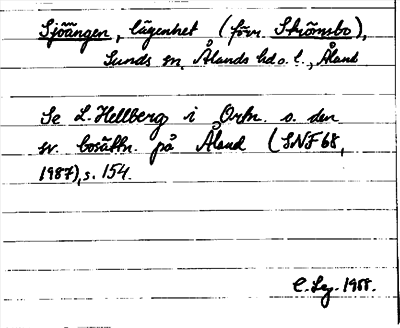 Sjöängen, lägenhet (förr Strömsbo),
Sunds sn, Ålands hd o. l., Åland
Se L. Hellberg i Ortn. o. den
sv. bosättn. på Åland (SNF 68,
1987), s. 154.
1988.